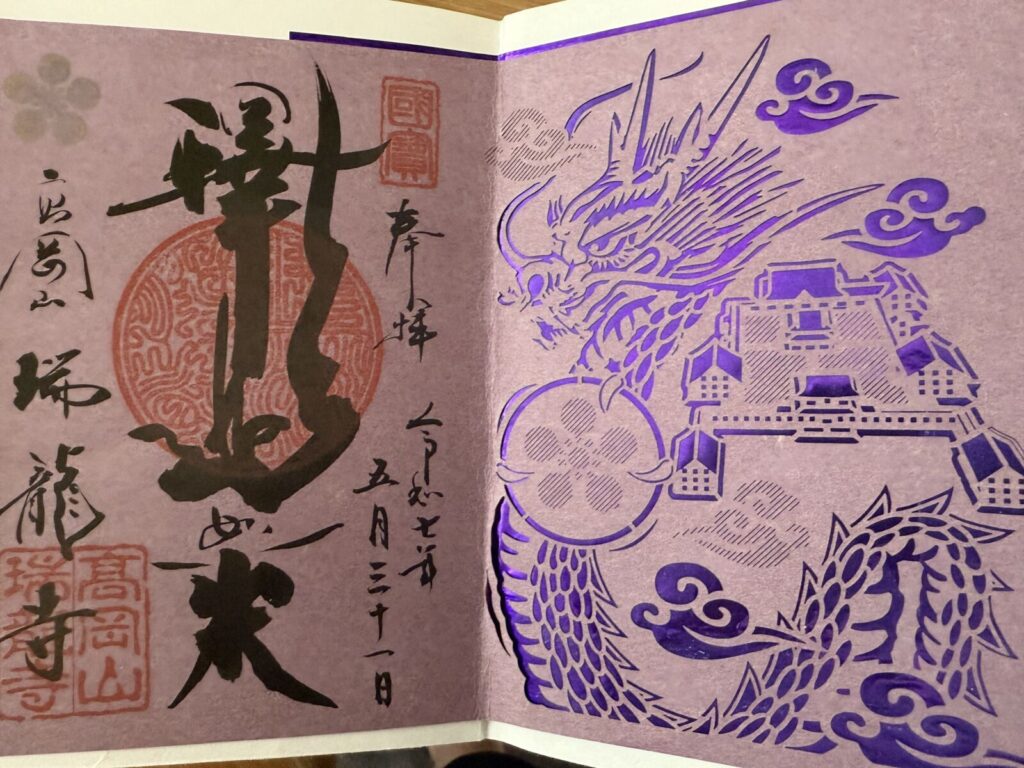 國寶
奉拝
令和七年
五月三十一日
釋迦如来
高岡山 瑞龍寺
髙岡山
瑞龍寺